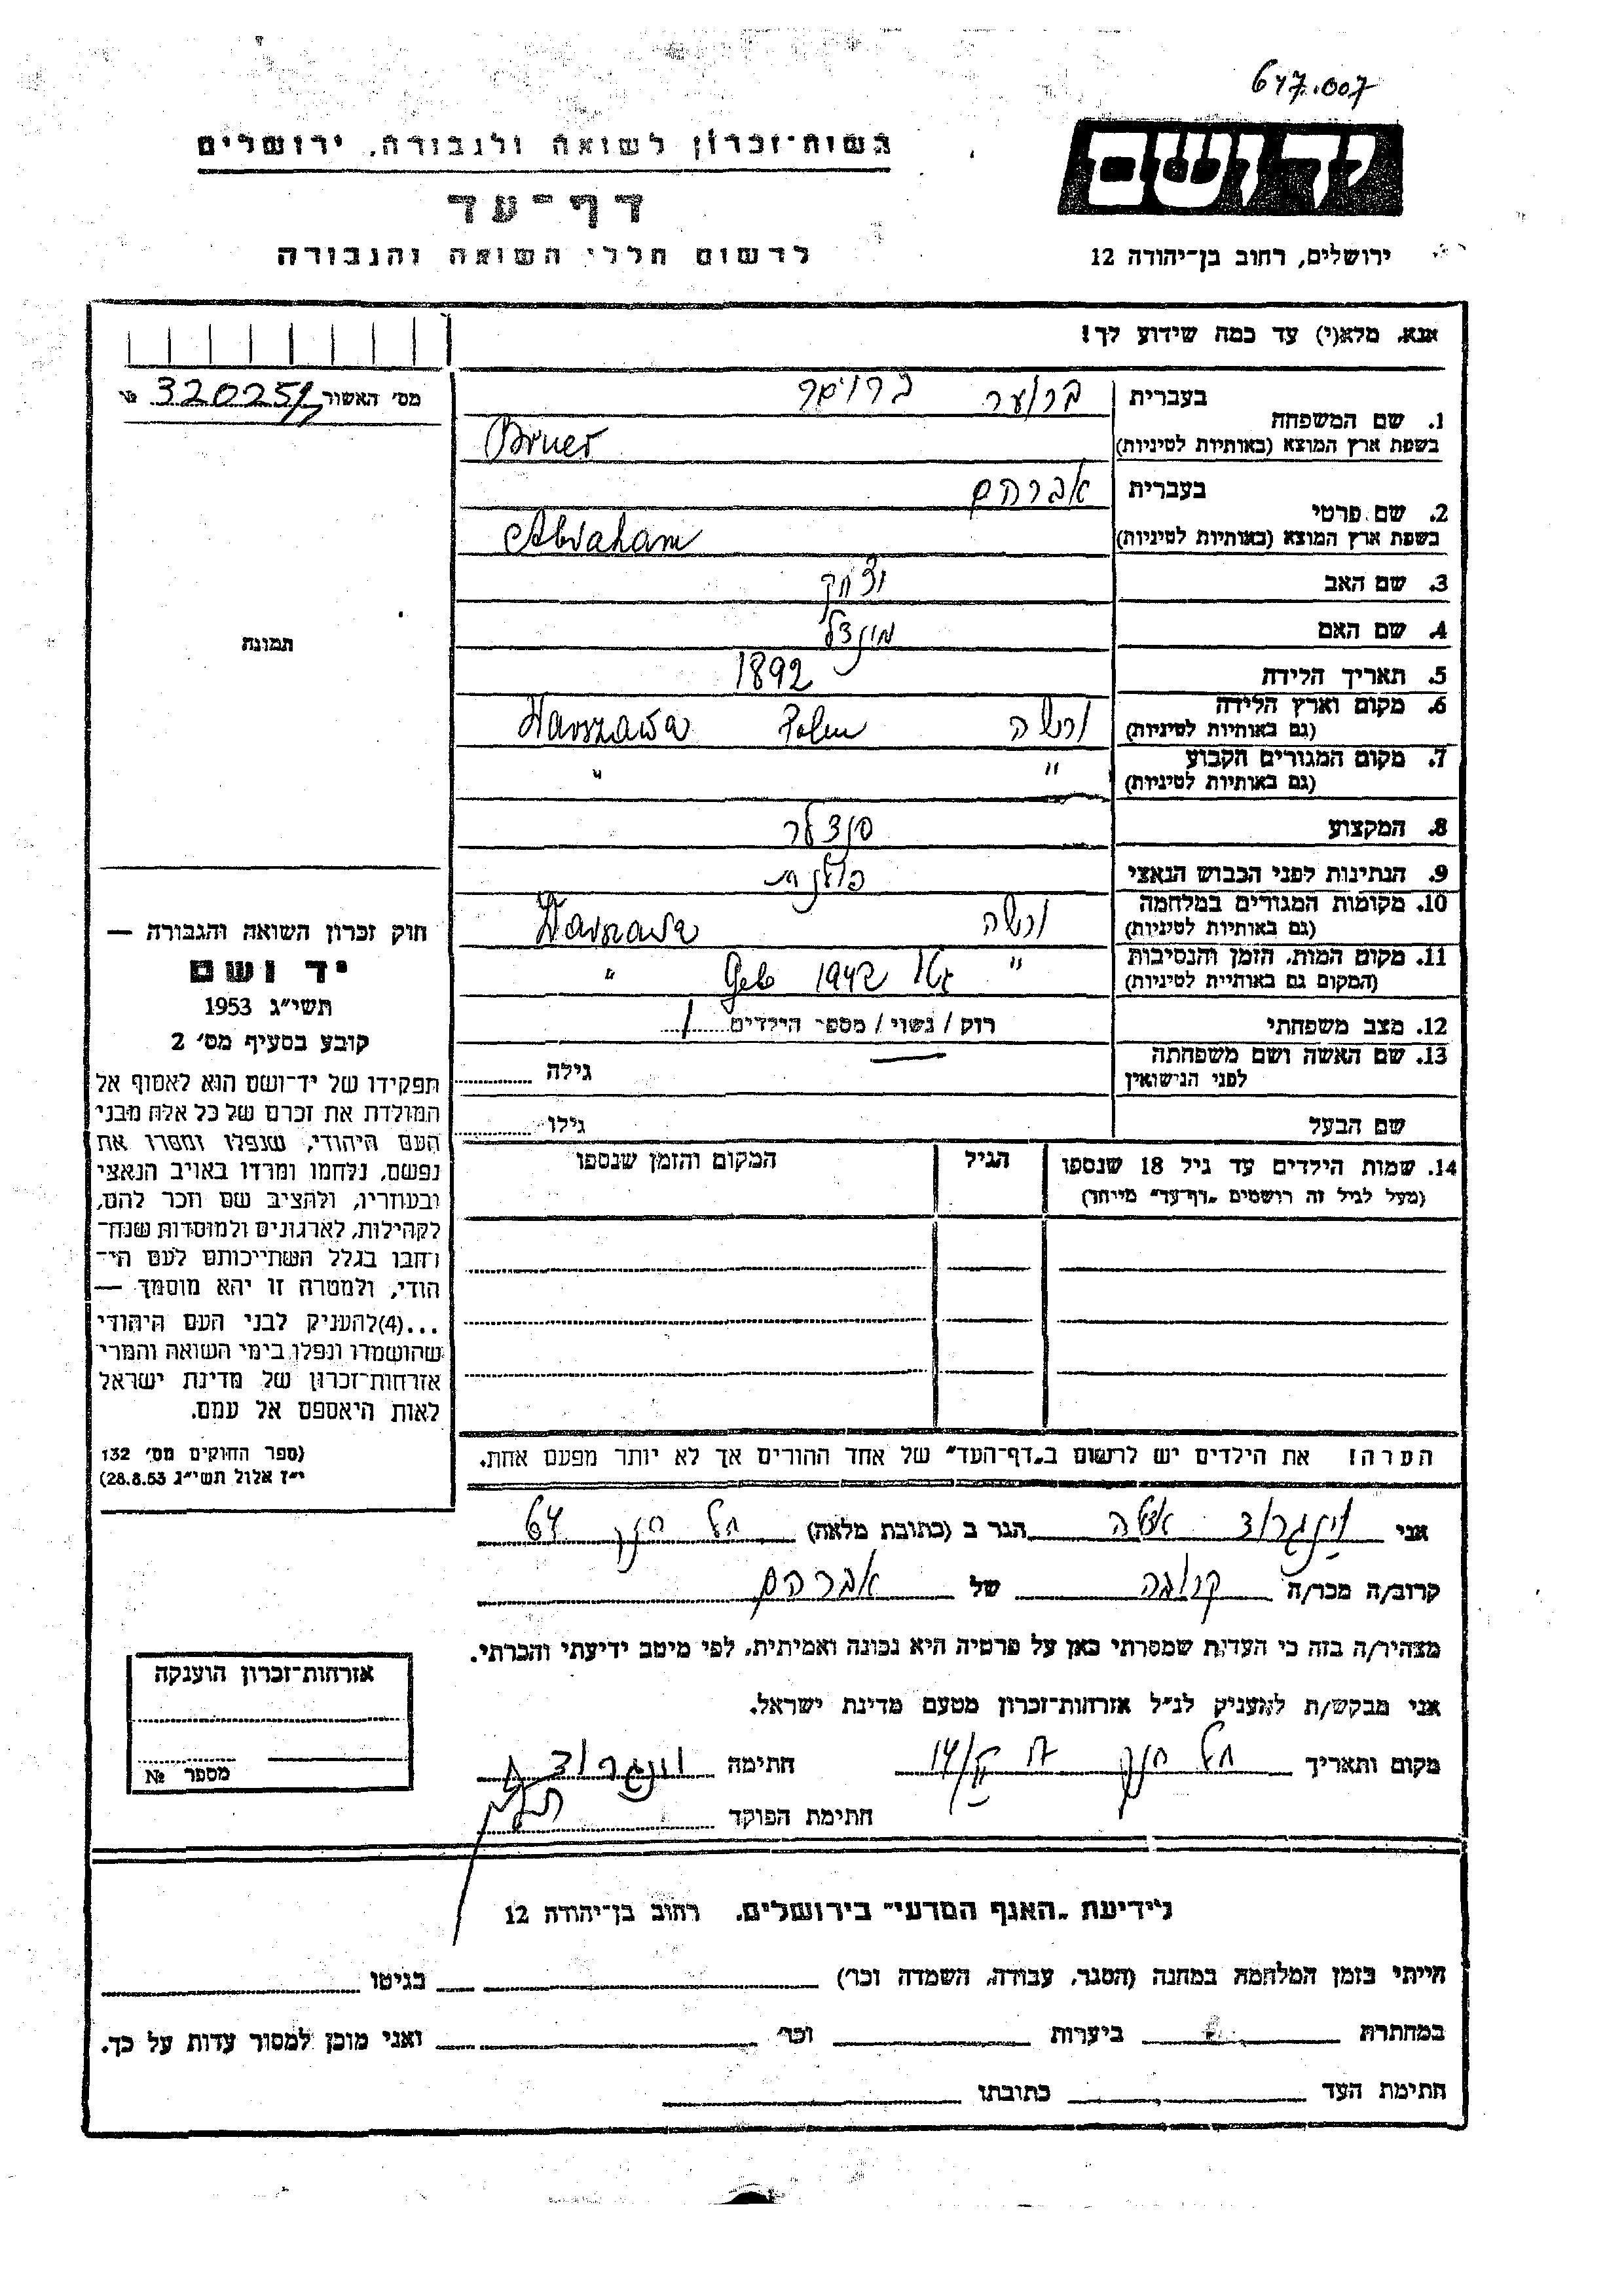 647.007
יד ושם
רשות־זכרון לשואה ולגבורה, ירושלים
דף־עד
לרשום חללי השואה והגבורה
ירושלים, רחוב בן־יהודה 12
אנא, מלא(י) עד כמה שידוע לך!
מס׳ האשור 320251 №
1. שם המשפחה
בעברית ברוער ברויאר
בשפת ארץ המוצא (באותיות לטיניות) Bruer
2. שם פרטי
בעברית אברהם
בשפת ארץ המוצא (באותיות לטיניות) Abraham
3. שם האב יצחק
4. שם האם
תמונה
5. תאריך הלידה 1892
6. מקום וארץ הלידה ורשה Polen Warszawa
(גם באותיות לטיניות)
7. מקום המגורים הקבוע " "
(גם באותיות לטיניות)
8. המקצוע סנדלר
9. הנתינות לפני הכבוש הנאצי פולנית
10. מקומות המגורים במלחמה ורשה Warszawa
(גם באותיות לטיניות)
11. מקום המות, הזמן והנסיבות " גטו 1942 "
(המקום גם באותיות לטיניות)
12. מצב משפחתי רוק / נשוי / מספר הילדים 1
13. שם האשה ושם משפחתה
לפני הנישואין
גילה
שם הבעל גילו
14. שמות הילדים עד גיל 18 שנספו הגיל המקום והזמן שנספו
(מעל לגיל זה רושמים „דף־עד״ מייחד)
חוק זכרון השואה והגבורה —
יד ושם
תשי״ג 1953
קובע בסעיף מס׳ 2
תפקידו של יד־ושם הוא לאסוף אל
המולדת את זכרם של כל אלה מבני
העם היהודי, שנפלו ומסרו את
נפשם, נלחמו ומרדו באויב הנאצי
ובעוזריו, ולהציב שם וזכר להם,
לקהילות, לארגונים ולמוסדות שנח־
רחבו בגלל השתייכותם לעם הי־
הודי, ולמטרה זו יהא מוסמך —
...(4)להעניק לבני העם היהודי
שהושמדו ונפלו בימי השואה והמרי
אזרחות־זכרון של מדינת ישראל
לאות היאספם אל עמם.
(ספר החוקים מס׳ 132
י״ז אלול תשי״ג 28.8.53)
הערה! את הילדים יש לרשום ב„דף־העד״ של אחד ההורים אך לא יותר מפעם אחת.
אני וינגרוד הגר ב (כתובת מלאה) תל חנן 64
קרוב/ה מכר/ה קרובה של אברהם
מצהיר/ה בזה כי העדות שמסרתי כאן על פרטיה היא נכונה ואמיתית, לפי מיטב ידיעתי והכרתי.
אני מבקש/ת להעניק לנ״ל אזרחות־זכרון מטעם מדינת ישראל.
מקום ותאריך תל חנן חתימה וינגרוד
חתימת הפוקד
אזרחות־זכרון הוענקה
מספר №
לידיעת „האגף המדעי״ בירושלים, רחוב בן־יהודה 12
הייתי בזמן המלחמה במחנה (הסגר, עבודה, השמדה וכר׳) בגיטו
במחתרת ביערות וכר׳ ואני מוכן למסור עדות על כך.
חתימת העד כתובתו